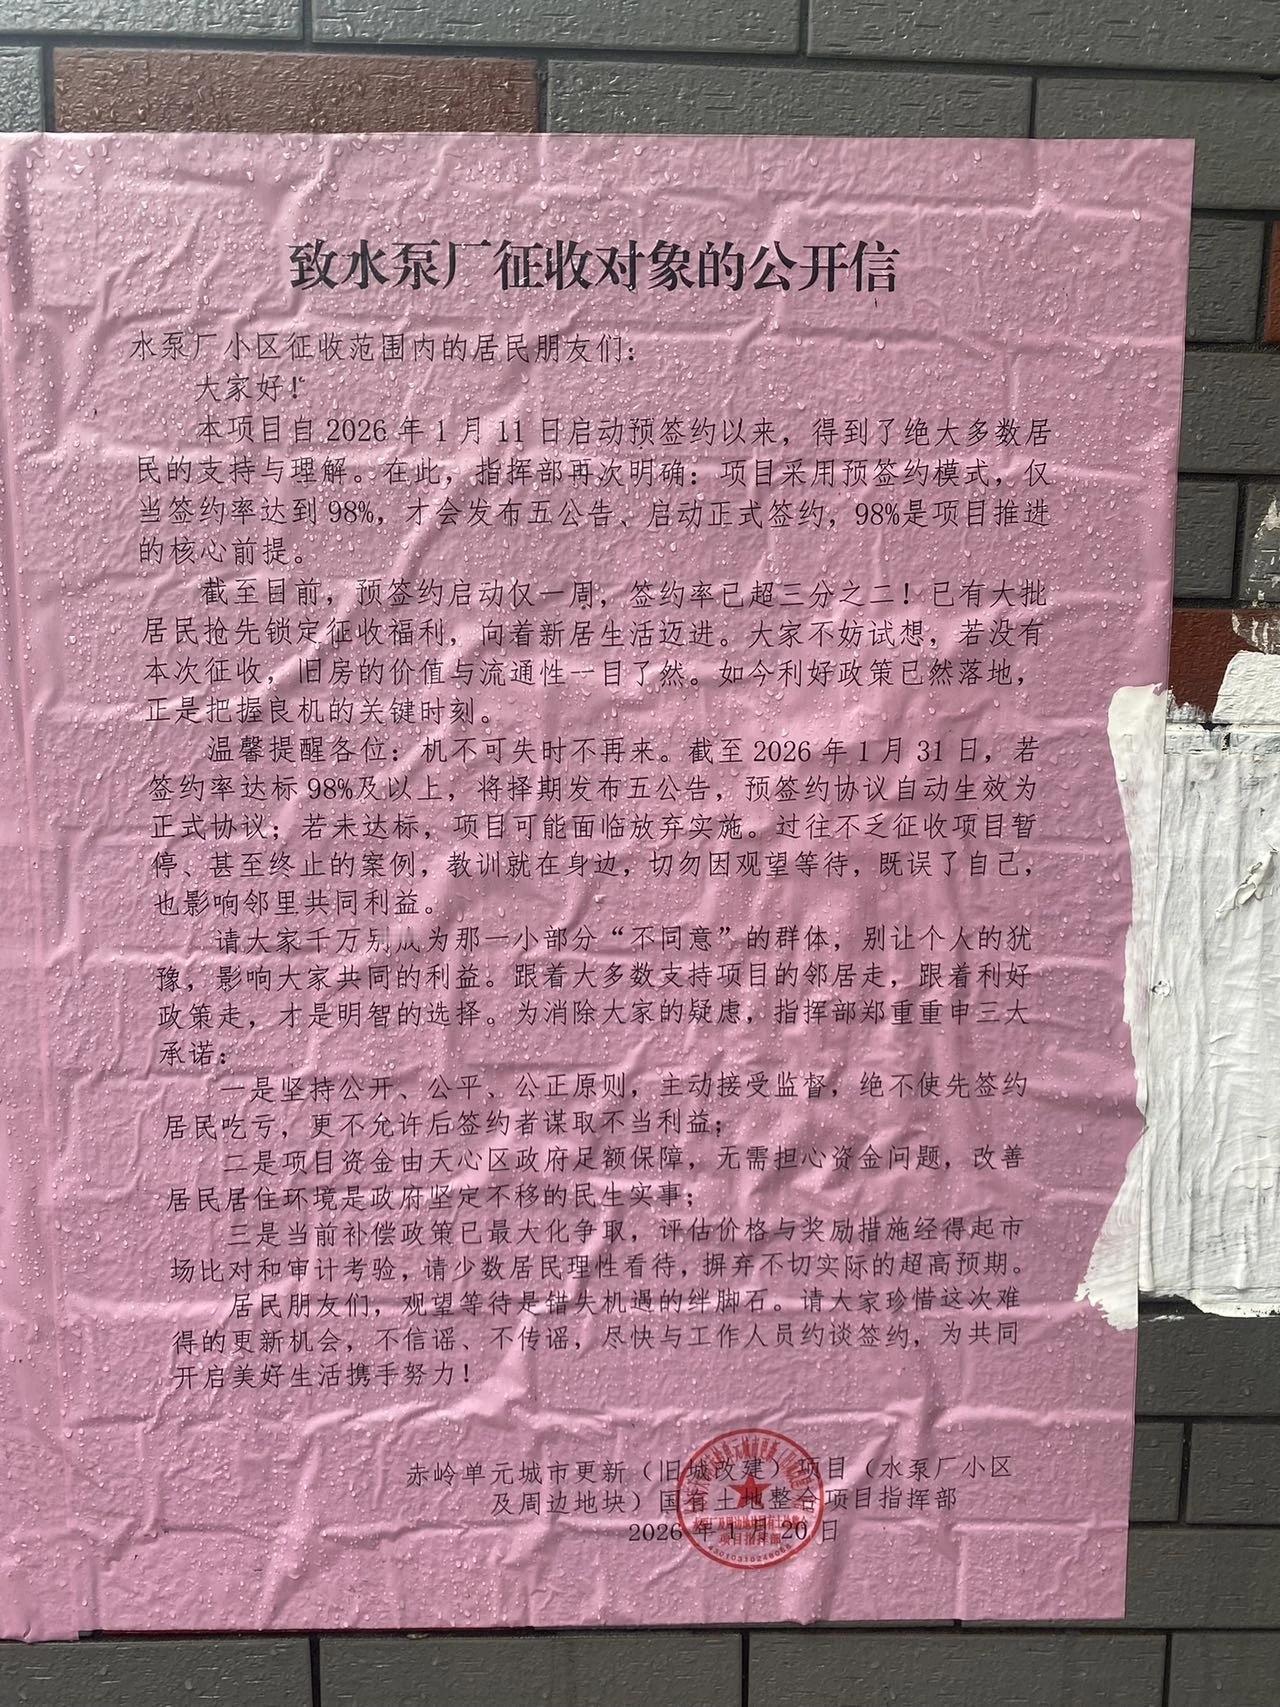 致水泵厂征收对象的公开信
水泵厂小区征收范围内的居民朋友们：
大家好！
本项目自 2026 年 1 月 11 日启动预签约以来，得到了绝大多数居
民的支持与理解。在此，指挥部再次明确：项目采用预签约模式，仅
当签约率达到 98%，才会发布五公告、启动正式签约，98%是项目推进
的核心前提。
截至目前，预签约启动仅一周，签约率已超三分之二！已有大批
居民抢先锁定征收福利，向着新居生活迈进。大家不妨试想，若没有
本次征收，旧房的价值与流通性一目了然。如今利好政策已然落地，
正是把握良机的关键时刻。
温馨提醒各位：机不可失时不再来。截至 2026 年 1 月 31 日，若
签约率达标 98%及以上，将择期发布五公告，预签约协议自动生效为
正式协议；若未达标，项目可能面临放弃实施。过往不乏征收项目暂
停、甚至终止的案例，教训就在身边，切勿因观望等待，既误了自己，
也影响邻里共同利益。
请大家千万别成为那一小部分“不同意”的群体，别让个人的犹
豫，影响大家共同的利益。跟着大多数支持项目的邻居走，跟着利好
政策走，才是明智的选择。为消除大家的疑虑，指挥部郑重重申三大
承诺：
一是坚持公开、公平、公正原则，主动接受监督，绝不使先签约
居民吃亏，更不允许后签约者谋取不当利益；
二是项目资金由天心区政府足额保障，无需担心资金问题，改善
居民居住环境是政府坚定不移的民生实事；
三是当前补偿政策已最大化争取，评估价格与奖励措施经得起市
场比对和审计考验，请少数居民理性看待，摒弃不切实际的超高预期。
居民朋友们，观望等待是错失机遇的绊脚石。请大家珍惜这次难
得的更新机会，不信谣、不传谣，尽快与工作人员约谈签约，为共同
开启美好生活携手努力！
赤岭单元城市更新（旧城改建）项目（水泵厂小区
及周边地块）国有土地整合项目指挥部
2026 年 1 月 20 日
项目指挥部